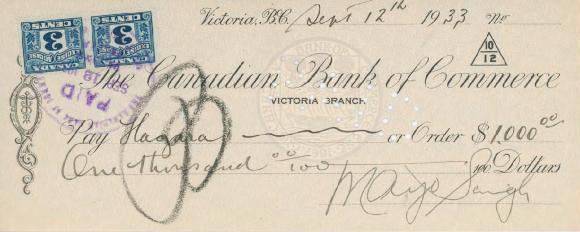 Victoria, B.C. Sept 12th 1933 No
3 CENTS 3 CENTS
CANADA EXCISE CANADA EXCISE
10/12
The Canadian Bank of Commerce
PAID
SEP 12
VICTORIA BRANCH
Pay Hagara or Order $1,000 00
One thousand 00/100 100 Dollars
Mayo Singh